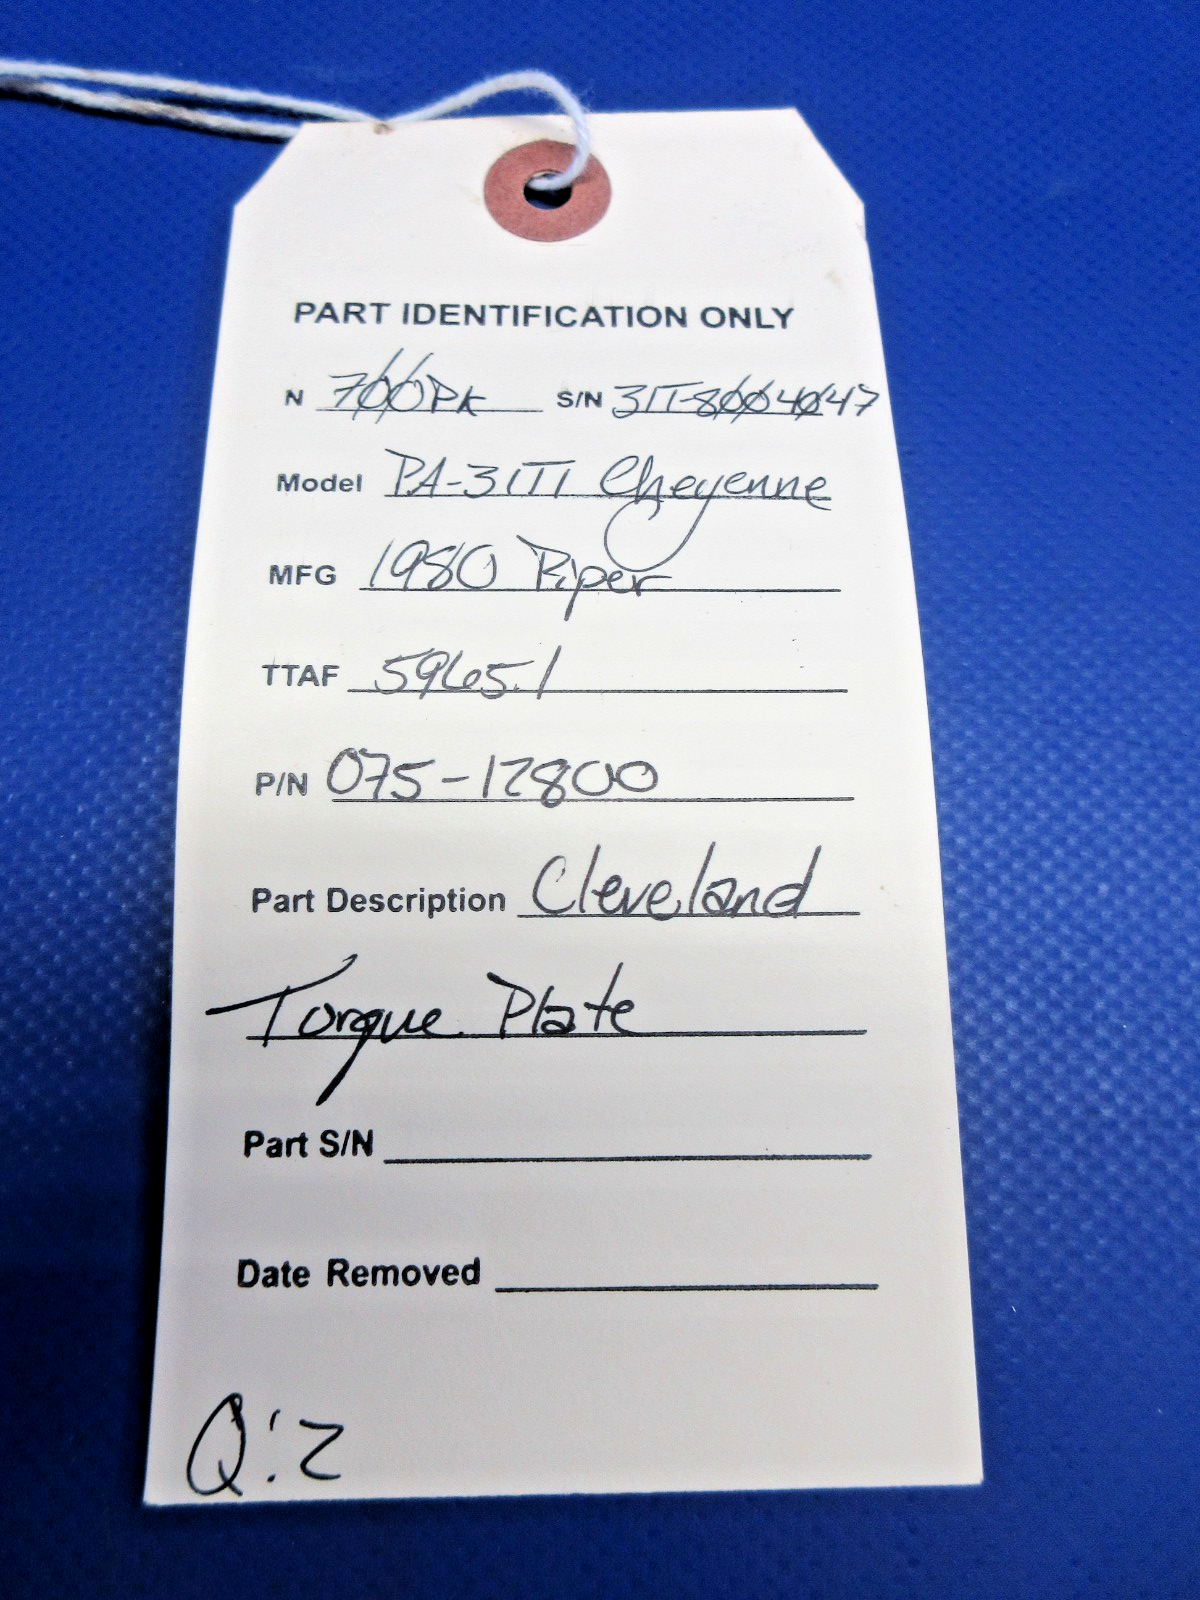 PART IDENTIFICATION ONLY
N 700PK S/N 31T-8004047
Model PA-31T1 Cheyenne
MFG 1980 Piper
TTAF 5965.1
P/N 075-12800
Part Description Cleveland
Torque Plate
Part S/N
Date Removed
Q:2